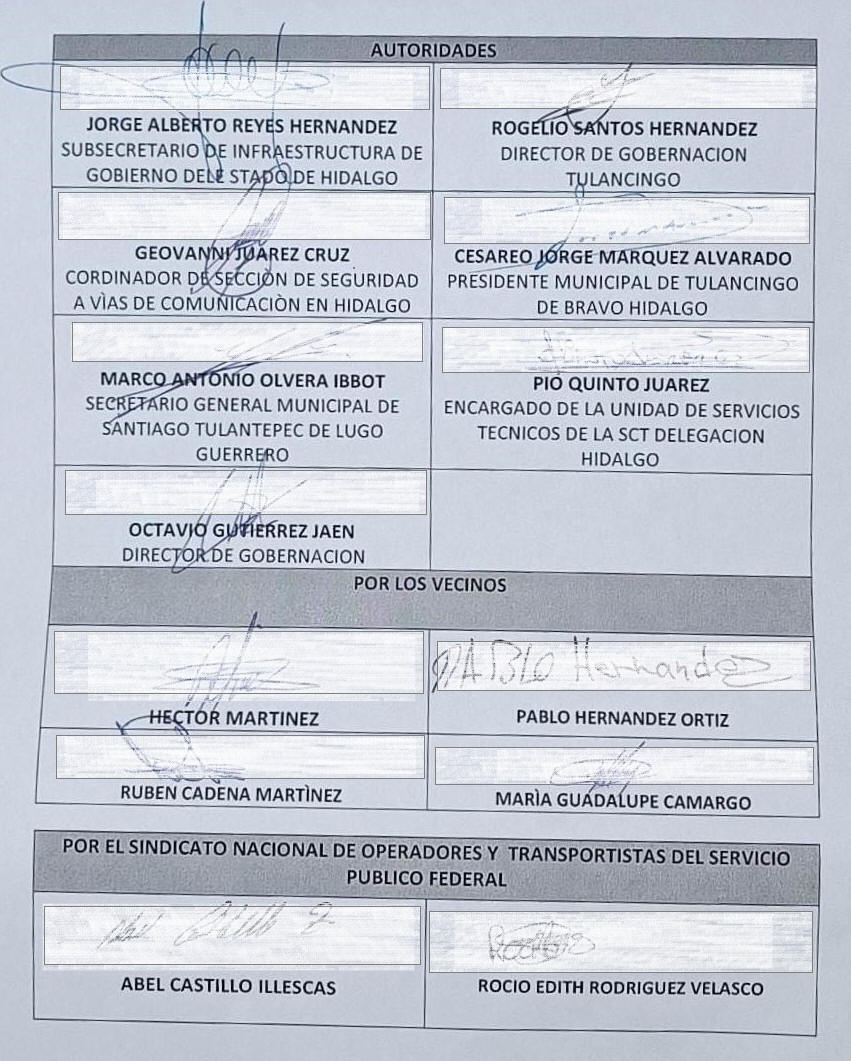 AUTORIDADES
JORGE ALBERTO REYES HERNANDEZ
SUBSECRETARIO DE INFRAESTRUCTURA DE
GOBIERNO DELE STADO DE HIDALGO
ROGELIO SANTOS HERNANDEZ
DIRECTOR DE GOBERNACION
TULANCINGO
GEOVANNI JUAREZ CRUZ
CORDINADOR DE SECCIÓN DE SEGURIDAD
A VÌAS DE COMUNICACIÒN EN HIDALGO
CESAREO JORGE MARQUEZ ALVARADO
PRESIDENTE MUNICIPAL DE TULANCINGO
DE BRAVO HIDALGO
MARCO ANTONIO OLVERA IBBOT
SECRETARIO GENERAL MUNICIPAL DE
SANTIAGO TULANTEPEC DE LUGO
GUERRERO
PIO QUINTO JUAREZ
ENCARGADO DE LA UNIDAD DE SERVICIOS
TECNICOS DE LA SCT DELEGACION
HIDALGO
OCTAVIO GUTIERREZ JAEN
DIRECTOR DE GOBERNACION
POR LOS VECINOS
HECTOR MARTINEZ
PABLO Hernandez
PABLO HERNANDEZ ORTIZ
RUBEN CADENA MARTÌNEZ
MARÌA GUADALUPE CAMARGO
POR EL SINDICATO NACIONAL DE OPERADORES Y TRANSPORTISTAS DEL SERVICIO
PUBLICO FEDERAL
ABEL CASTILLO ILLESCAS
ROCIO EDITH RODRIGUEZ VELASCO